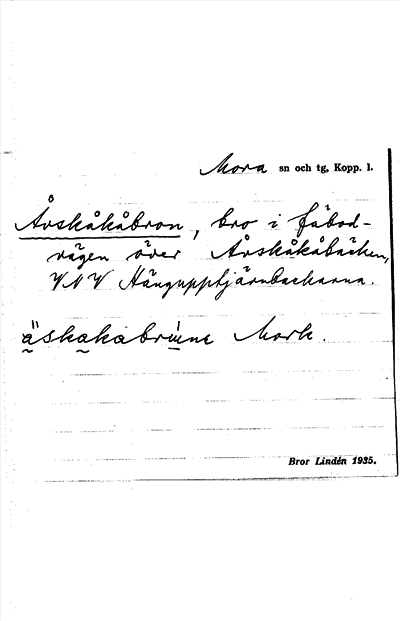 Mora sn och tg, Kopp. l.
Årskåkåbron, bro i fäbod-
vägen över Årskåkåbäcken,
VNV Hängupptjärnbackarna.
Mork.
Bror Lindén 1935.